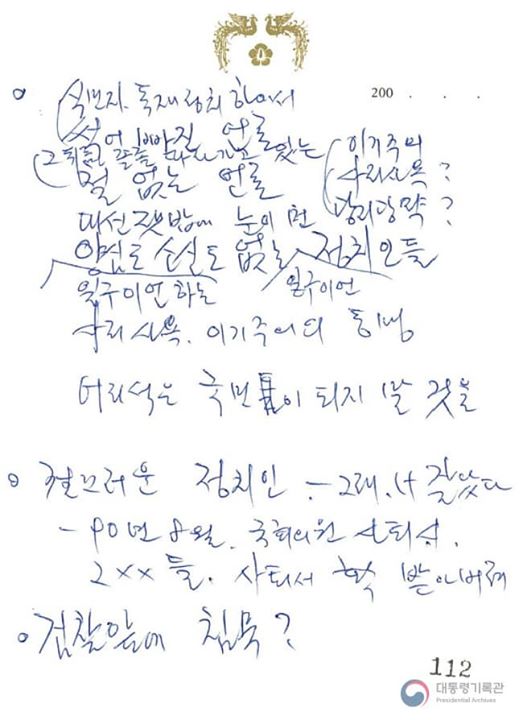 200 . . .
식민지. 독재정치 하에서
썩어 빠질 언론
그 뒤를 졸졸 따라가고 있는 이기주의
철 없는 언론 사리사욕?
대선 잿밥에 눈이 먼 당리당략?
양심도 소신도 없는 정치인들
일구이언 하는 일구이언
사리사욕. 이기주의의
어리석은 국민들이 되지 말 것을
정치인 – 그래. 너 잘났다
- 90년 8월. 국회의원 사퇴서.
2×× 들. 사퇴서 확 받아버려
검찰앞에 침묵?
112
대통령기록관
Presidential Archives